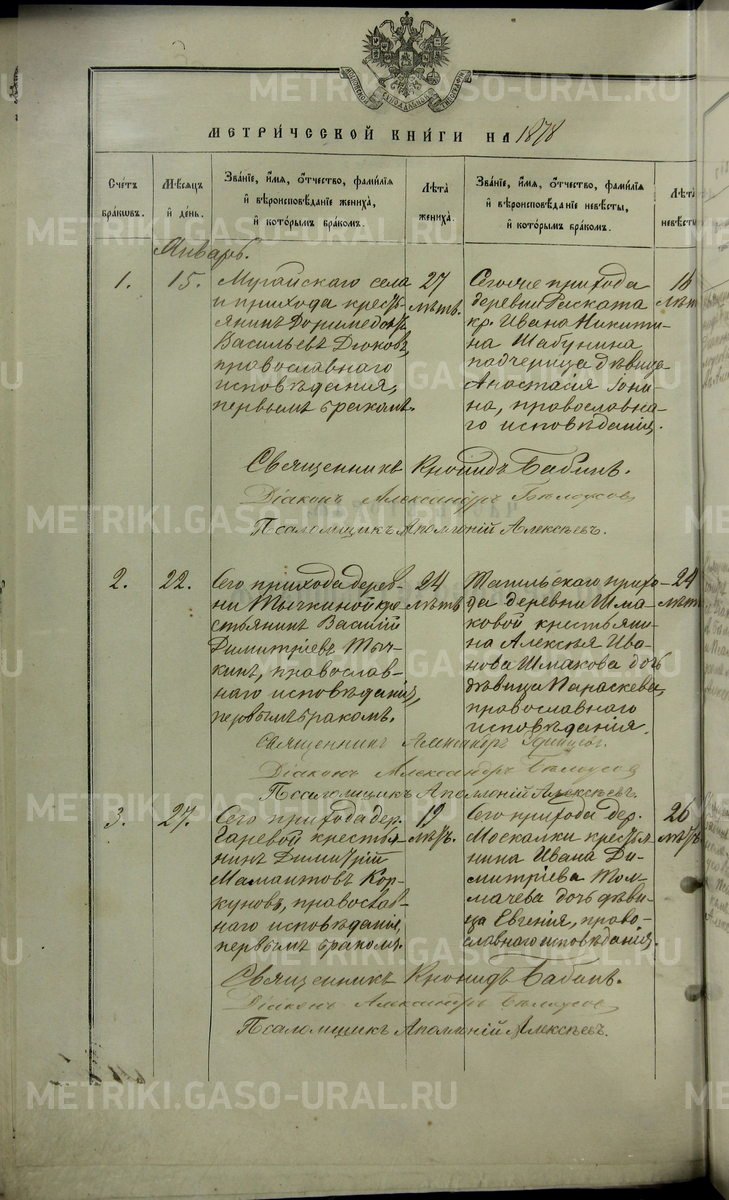 МЕТРИ́ЧЕСКОЙ КНИ́ГИ НА 1878
Сче́тъ бра́кωвъ.
Мѣ́сяцъ й де́нь.
Зва́нїе, и́мя, о́тчество, фами́лїя
й вѣроисповѣ́данїе жениха̀,
й кото́рымъ бра́комъ.
Лѣ́та жениха̀.
Зва́нїе, и́мя, о́тчество, фами́лїя
й вѣроисповѣ́данїе невѣ́сты,
й кото́рымъ бра́комъ.
Лѣ́та невѣ́сты
Январь.
1.
15.
Мугайскаго села
и прихода кресть-
янинъ Доримедонтъ
Васильевъ Дюковъ,
православнаго
исповѣданія,
первымъ бракомъ.
27
лѣтъ.
Сего же прихода
деревни Раската
кр. Ивана Никити-
на Шабунина
падчерица дѣвица
Анастасія Іони-
на, православна-
го исповѣданія.
16
лѣтъ
Священникъ Кронидъ Бабинъ.
Діаконъ Александръ Бѣлоусов
Псаломщикъ Аполлоній Алексѣевъ.
2.
22.
Сего прихода дерев-
ни Тычкиной кре-
стьянинъ Василій
Димитріевъ Тыч-
кинъ, православ-
наго исповѣданія,
первымъ бракомъ.
24
лѣтъ
Тагильскаго прихо-
да деревни Шма-
ковой крестьяни-
на Алексѣя Ива-
нова Шмакова дочь
дѣвица Параскева,
православнаго
исповѣданія.
24
лѣтъ
Священникъ Александръ
Діаконъ Александръ Бѣлоусов
Псаломщикъ Аполлоній Алексѣевъ.
3.
27.
Сего прихода дер.
Гаревой крестья-
нинъ Димитрій
Мамантовъ Кор-
куновъ, православ-
наго исповѣданія,
первымъ бракомъ.
19
лѣтъ.
Сего прихода дер.
Москалки крестья-
нина Ивана Ди-
митріева Тол-
мачева дочь дѣви-
ца Евгенія, право-
славнаго исповѣданія.
26
лѣтъ
Священникъ Кронидъ Бабинъ.
Діаконъ Александръ Бѣлоусов
Псаломщикъ Аполлоній Алексѣевъ.
METRIKI.GASO-URAL.RU
METRIKI.GASO-URAL.RU
METRIKI.GASO-URAL.RU
METRIKI.GASO-URAL.RU
METRIKI.GASO-URAL.RU
METRIKI.GASO-URAL.RU
METRIKI.GASO-URAL.RU
METRIKI.GASO-URAL.RU